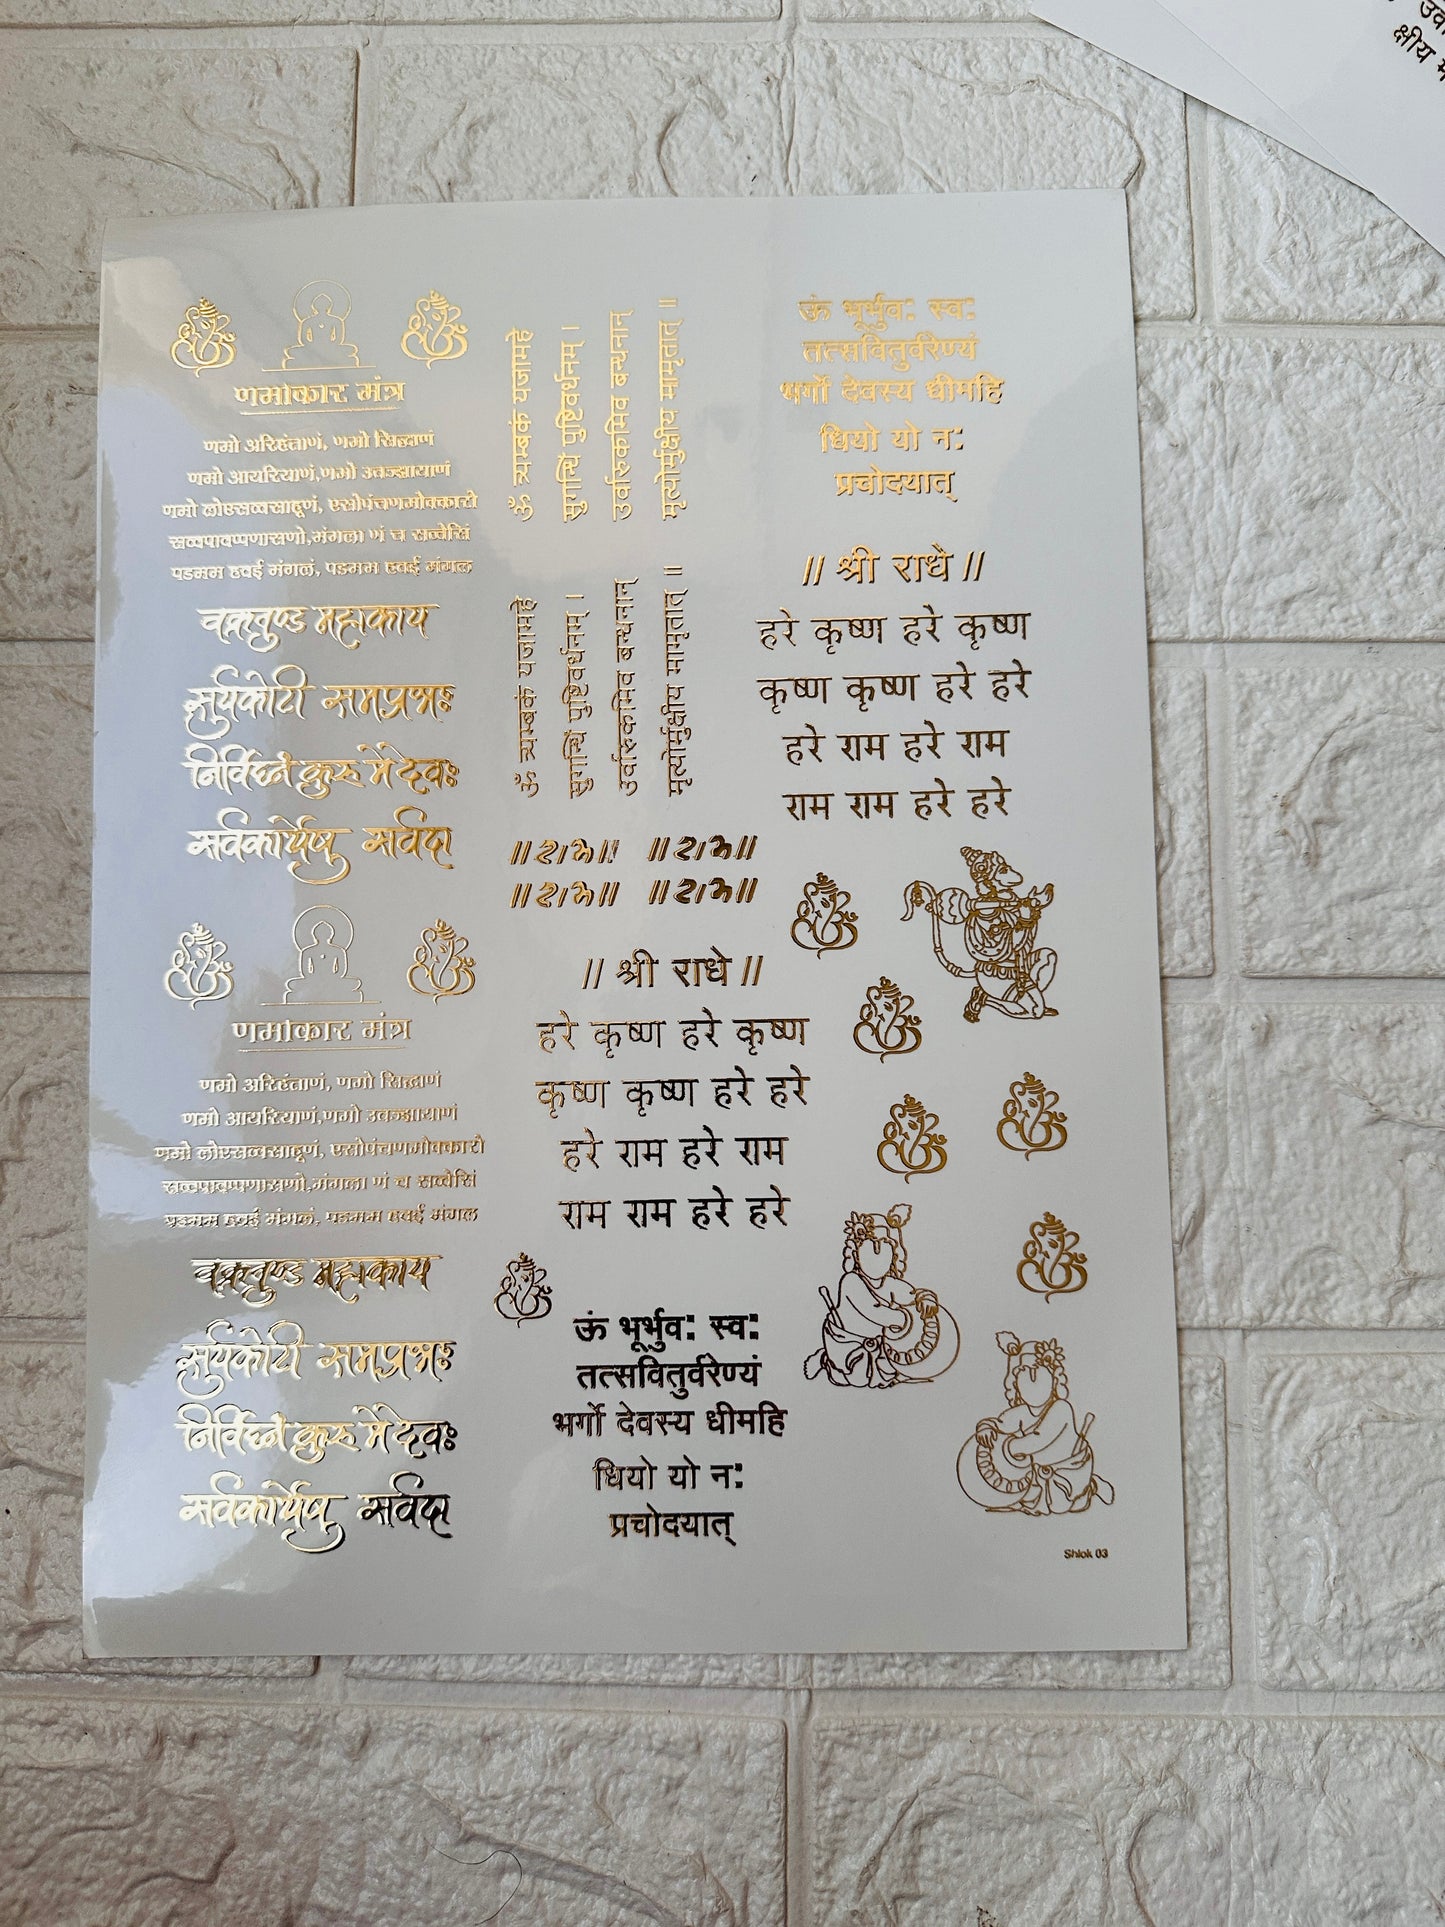 णमोकार मंत्र
णमो अरिहंताणं, णमो सिद्धाणं
णमो आयरियाणं,णमो उवज्झायाणं
णमो लोएसव्वसाहूणं, एसोपंचणमोक्कारो
सव्वपावप्पणासणो,मंगला णं च सव्वेसिं
पडमम हवई मंगलं, पडमम हवई मंगल
वक्रतुण्ड महाकाय
सुर्यकोटी समप्रभः
निर्विघ्नं कुरु मे देवः
सर्वकार्येषु सर्वदा
णमोकार मंत्र
णमो अरिहंताणं, णमो सिद्धाणं
णमो आयरियाणं,णमो उवज्झायाणं
णमो लोएसव्वसाहूणं, एसोपंचणमोक्कारो
सव्वपावप्पणासणो,मंगला णं च सव्वेसिं
पडमम हवई मंगलं, पडमम हवई मंगल
वक्रतुण्ड महाकाय
सुर्यकोटी समप्रभः
निर्विघ्नं कुरु मे देवः
सर्वकार्येषु सर्वदा
ॐ त्र्यम्बकं यजामहे
सुगन्धिं पुष्टिवर्धनम् ।
उर्वारुकमिव बन्धनान्
मृत्योर्मुक्षीय मामृतात् ॥
ॐ त्र्यम्बकं यजामहे
सुगन्धिं पुष्टिवर्धनम् ।
उर्वारुकमिव बन्धनान्
मृत्योर्मुक्षीय मामृतात् ॥
॥राम॥ ॥राम॥
॥राम॥ ॥राम॥
// श्री राधे //
हरे कृष्ण हरे कृष्ण
कृष्ण कृष्ण हरे हरे
हरे राम हरे राम
राम राम हरे हरे
ऊं भूर्भुव: स्व:
तत्सवितुर्वरेण्यं
भर्गो देवस्य धीमहि
धियो यो न:
प्रचोदयात्
ऊं भूर्भुव: स्व:
तत्सवितुर्वरेण्यं
भर्गो देवस्य धीमहि
धियो यो न:
प्रचोदयात्
// श्री राधे //
हरे कृष्ण हरे कृष्ण
कृष्ण कृष्ण हरे हरे
हरे राम हरे राम
राम राम हरे हरे
Shlok 03
क्षीय